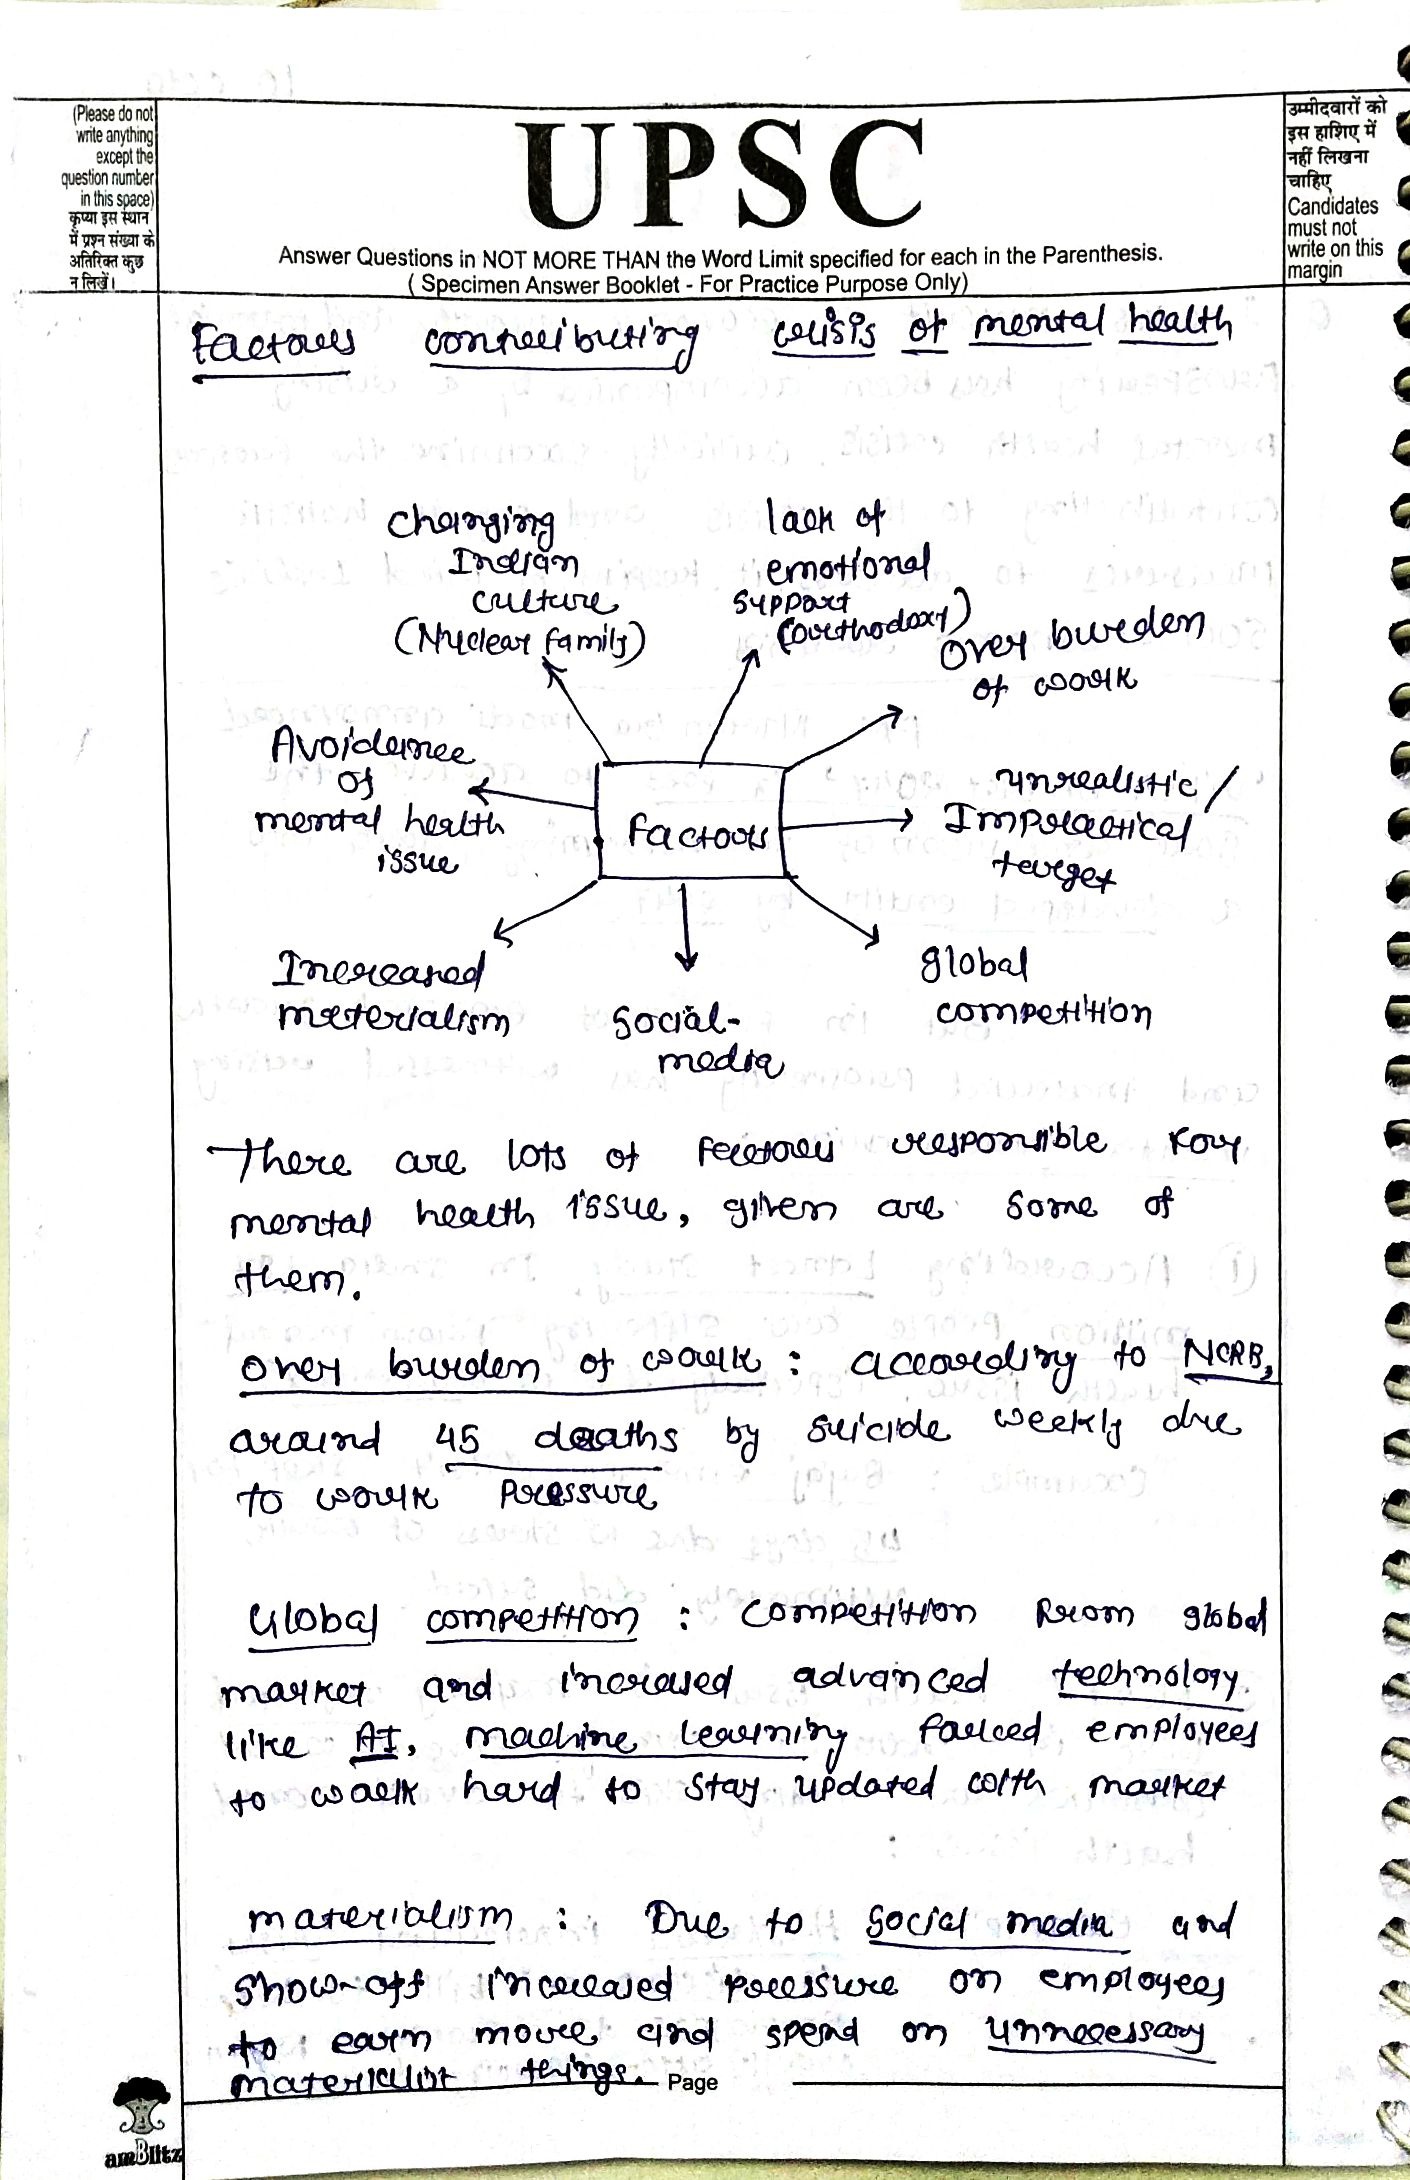 (Please do not
write anything
except the
question number
in this space)
कृप्या इस स्थान
में प्रश्न संख्या के
अतिरिक्त कुछ
न लिखें।
UPSC
Answer Questions in NOT MORE THAN the Word Limit specified for each in the Parenthesis.
( Specimen Answer Booklet - For Practice Purpose Only)
उम्मीदवारों को
इस हाशिए में
नहीं लिखना
चाहिए
Candidates
must not
write on this
margin
Factors contributing crisis of mental health
Changing
Indian
culture
(Nuclear family)
lack of
emotional
support
(orthodoxy)
Over burden
of work
Avoidance
of
mental health
issue
Factors
unrealistic /
Impractical
target
Increased
materialism
Social-
media
global
competition
There are lots of factors responsible for
mental health issue, given are some of
them.
Over burden of work : according to NCRB,
around 45 deaths by suicide weekly due
to work pressure
Global competition : competition from global
market and increased advanced technology
like AI, machine learning forced employees
to work hard to stay updated with market
materialism : Due to social media and
show-off increased pressure on employees
to earn more and spend on unnecessary
materialist things.
Page
amBlitz